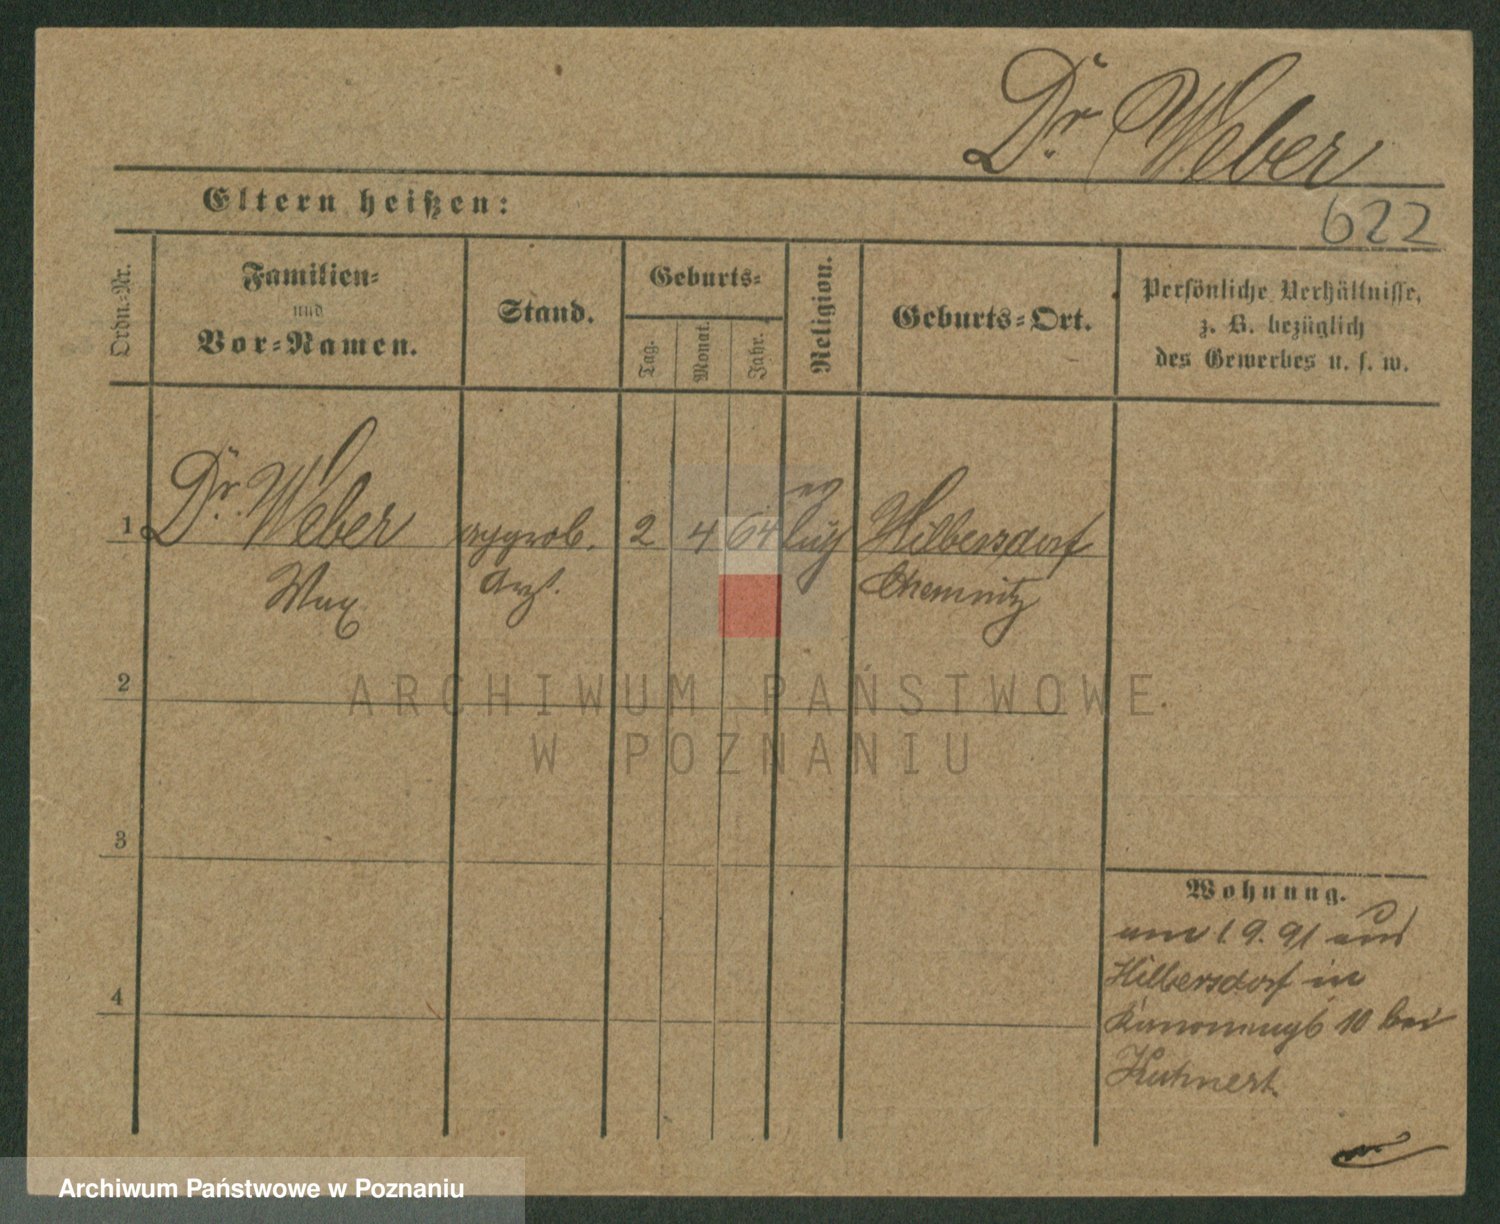 Dr. Weber
622
Eltern heißen:
Ordn.-Nr.
Familien-
und
Vor-Namen.
Stand.
Geburts-
Tag.
Monat.
Jahr.
Religion.
Geburts-Ort.
Persönliche Verhältnisse,
z. B. bezüglich
des Gewerbes u. s. w.
1 Dr. Weber approb. 2 4 64 ev Hilbersdorf
Max Arzt. Chemnitz
2
3
4
Wohnung.
am 1.9.91 aus
Hilbersdorf in
10 bei
Kuhnert
ARCHIWUM PAŃSTWOWE
W POZNANIU
Archiwum Państwowe w Poznaniu